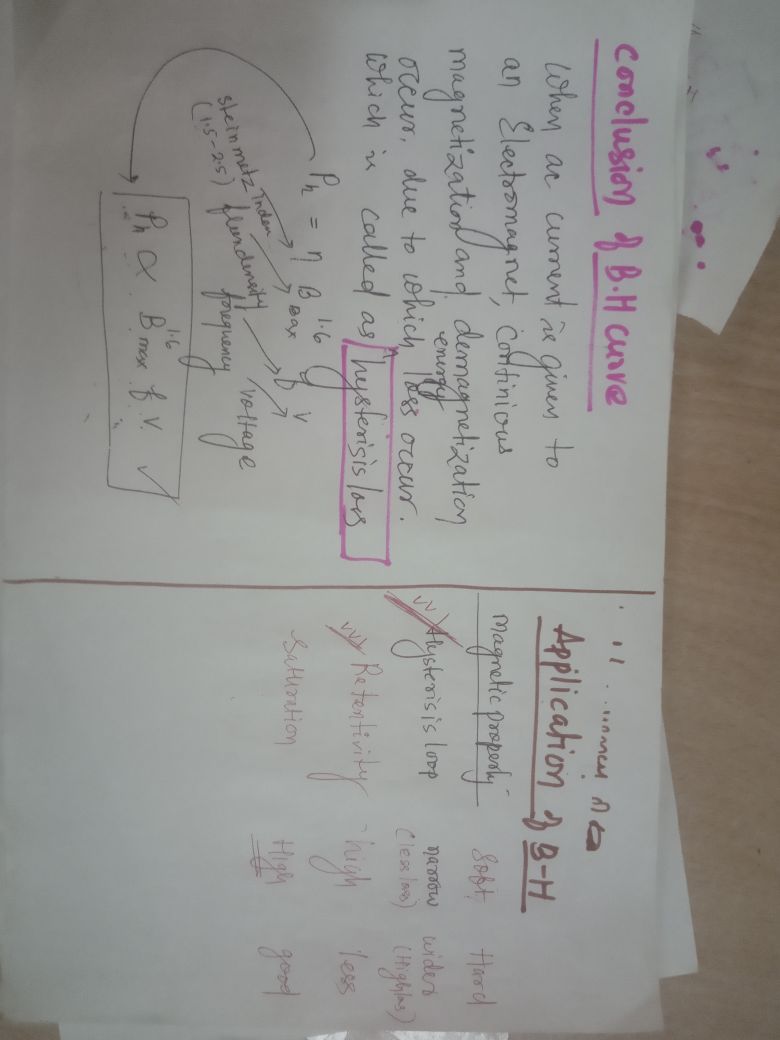 Conclusion of B.H curve
When ac current is given to
an Electromagnet, continious
magnetization and demagnetization
occur, due to which energy loss occur.
which is called as hysterisis loss
Ph = η Bmax^1.6 f v
steinmetz index
(1.5-2.5) flux density frequency voltage
Ph ∝ Bmax^1.6 f v. ✓
Application of B-H
magnetic property Soft Hard
Hysterisis loop narrow wider
(less loss) (High loss)
Retentivity high less
Saturation High good